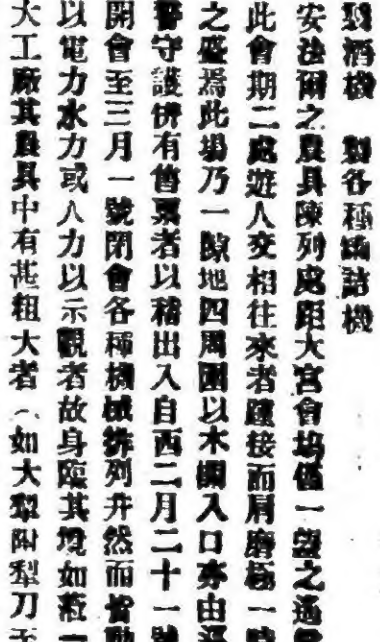 製酒機　製各種罐詰機
安法爾之農具陳列處距大宮會塲僅一盌之遙
此會期二處遊人交相往來者踵接而肩磨極一時
之盛焉此塲乃一隙地四周圍以木欄入口亦由
警守護併有售票者以稽出入自西二月二十一號
開會至三月一號閉會各種機械排列井然而皆動
以電力水力或人力以示觀者故身臨其境如蒞一
大工廠其農具中有甚粗大者（如大犂附犂刀